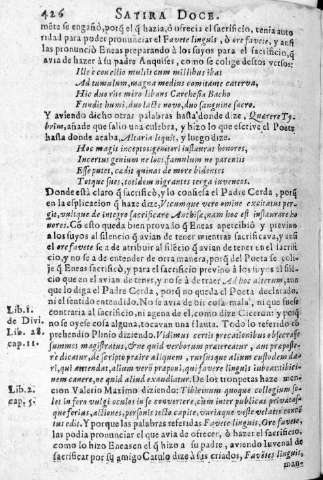 426 SATIRA DOCE.
mēte se engañó, porq̃ el q̃ hazia, ò ofrecia el sacrificio, tenia auto
ridad para poder pronunciar el Favete linguis, ò ore favete, y assi
las pronunciò Eneas preparando à los suyos para el sacrificio, q̃
avia de hazer à su padre Anquises, como se colige destos versos:
Ille è concilio multis cum millibus ibat
Ad tumulum, magna medius comitante caterva,
Hic duo rite mero libans Carchesia Bacho
Fundit humi, duo lacte novo, duo sanguine sacro.
Y aviendo dicho otras palabras hasta donde dize, Quærere Ty-
brim, añade que salio una culebra, y hizo lo que escrive el Poeta
hasta donde acaba, Altaria liquit, y luego dize.
Hoc magis inceptos genitori instaurat honores,
Incertus genium ne loci, famulum ne parentis
Esse putet, cædit quinas de more bidentes
Totque sues, totidem nigrantes terga invencos.
Donde està claro q̃ sacrificò, y lo confiessa el Padre Cerda, porq̃
en la esplicacion q̃ haze dize,
ros. Cō esto queda bien provado q̃ Eneas apercibiò y previno
a los suyos al silencio q̃ avian de tener mientras sacrificava, y assi
el ore favete se a de atribuir al silēcio q̃ avian de tener en el sacrifi
cio, y no se a de entender de otra manera, porq̃ del Poeta se coli-
je q̃ Eneas sacrificò, y para el sacrificio previno à los suyos al silē-
cio que en el avian de tener, y no se à de traer Ad hoc alterum, aun
que lo diga el Padre Cerda, porq̃ no queda el Poeta declarado,
ni el sentido entendido. No se avia de oir cosa mala, ni que fuese
contraria al sacrificio, ni agena de el, como dize Ciceron; y porq̃
Lib. 1. de Divi. no se oyese cosa alguna, tocavan una flauta. Todo lo referido cō
Lib. 28. cap. 11. prehendio Plinio diziendo: Vidimus certis precationibus obsecrasse
summos magistratus, & ne quid verborum prætereatur, aut præposte-
re dicatur, de scripto præire aliquem, rursusque alium custodem dari,
qui
nem canere, ne quid aliud exaudiatur. De los trompetas haze men-
Lib. 2. cap. 5. cion Valerio Maximo diziendo: Tibicinum quoque collegium so-
let in foro vulgi oculos in se convertere, cum inter publicas privatas-
que ferias, actiones, personis tecto capite, variaque veste velatis
edit. Y porque las palabras referidas Favete linguis, Ore favete,
las podia pronunciar el que avia de ofrecer, ò hazer el sacrificio,
como lo hizo Eneas en el q̃ hizo a su padre, aviendo Juvenal de
sacrificar por su amigo Catulo dize à sus criados, Favete linguis,